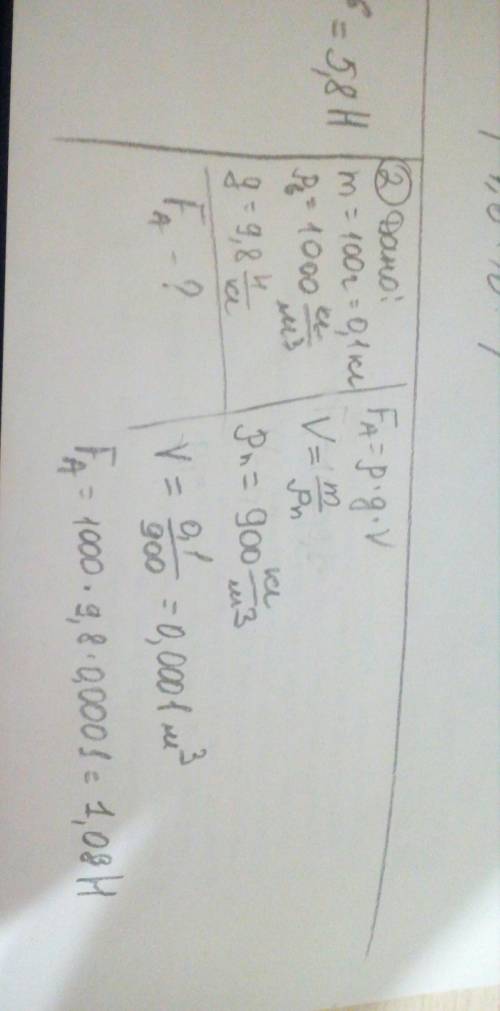 = 5,8 Н
② Дано:
m = 100г = 0,1 кг
ρв = 1000 кг/м³
g = 9,8 Н/кг
FA - ?
FA = ρ·g·V
V = m/ρл
ρл = 900 кг/м³
V = 0,1/900 = 0,0001 м³
FA = 1000 · 9,8 · 0,0001 = 1,08 Н